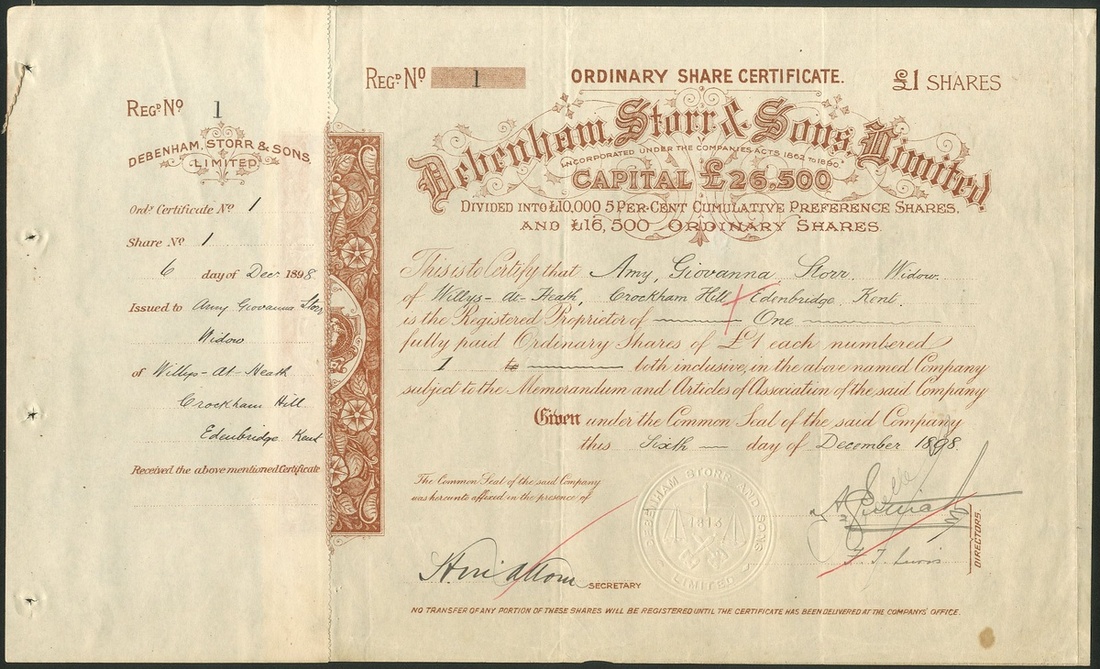 REGD No 1
DEBENHAM, STORR & SONS,
LIMITED.
Ord? Certificate No 1
Share No 1
6 day of Dec. 1898
Issued to Amy Giovanna Storr
Widow
of Willys-At-Heath
Crockham Hill
Edenbridge Kent
Received the above mentioned Certificate
REGD No 1
ORDINARY SHARE CERTIFICATE.
£1 SHARES
Debenham, Storr & Sons, Limited.
INCORPORATED UNDER THE COMPANIES ACTS 1862 TO 1890
CAPITAL £26,500
DIVIDED INTO £10,000 5 PER-CENT CUMULATIVE PREFERENCE SHARES,
AND £16,500 ORDINARY SHARES.
This is to Certify that Amy, Giovanna Storr. Widow.
of Willys-At-Heath, Crockham Hill Edenbridge. Kent.
is the Registered Proprietor of One
fully paid Ordinary Shares of £1 each numbered
1 to both inclusive, in the above named Company
subject to the Memorandum and Articles of Association of the said Company
Given under the Common Seal of the said Company
this Sixth day of December 1898.
The Common Seal of the said Company
was hereunto affixed, in the presence of
DEBENHAM STORR AND SONS
1813
LIMITED
F. J. Lewis
DIRECTORS.
SECRETARY
NO TRANSFER OF ANY PORTION OF THESE SHARES WILL BE REGISTERED UNTIL THE CERTIFICATE HAS BEEN DELIVERED AT THE COMPANYS' OFFICE.